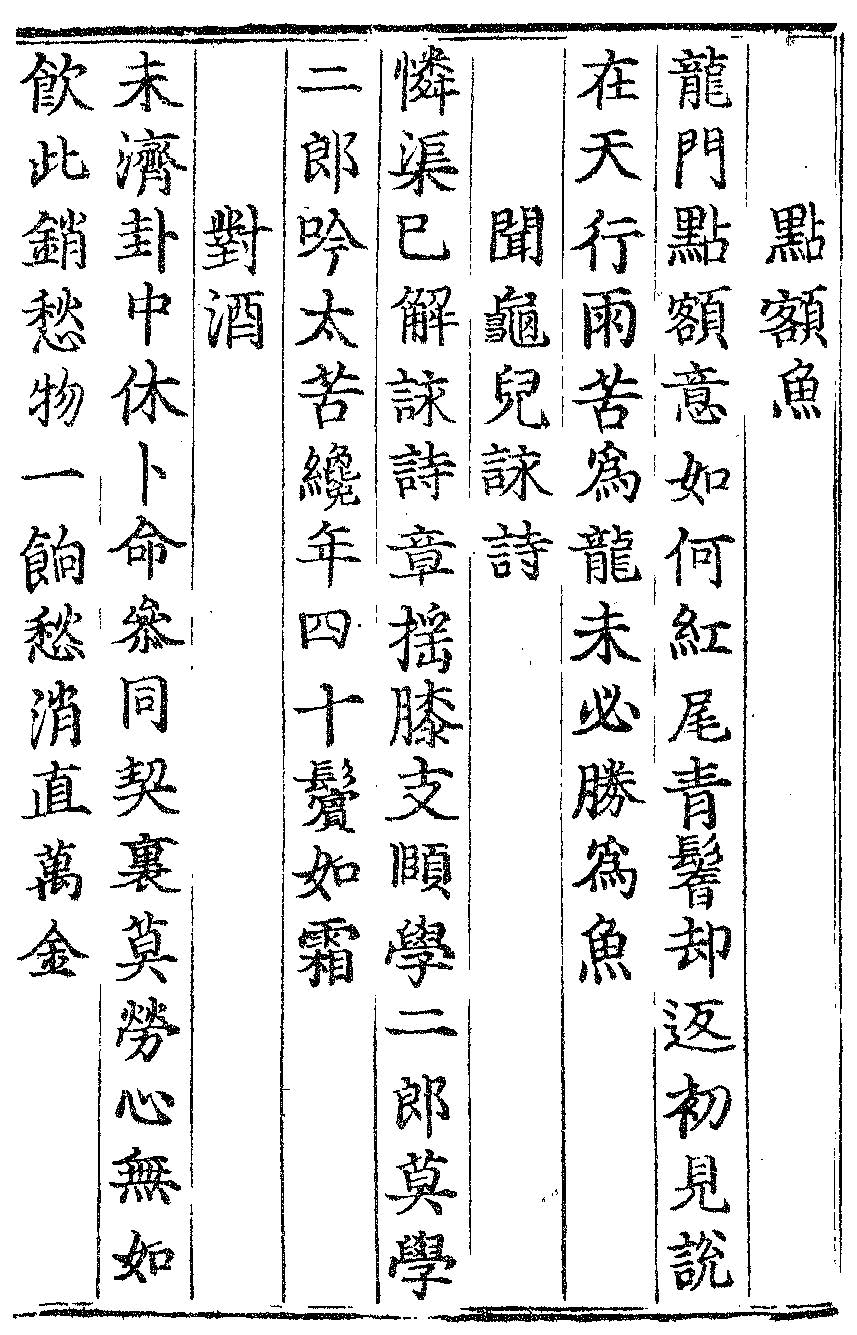 點額魚
龍門點額意如何紅尾青鬐却返初見說
在天行雨苦爲龍未必勝爲魚
聞龜兒詠詩
憐渠已解詠詩章揺膝支頤學二郎莫學
二郎吟太苦纔年四十鬢如霜
對酒
未濟卦中休卜命參同契裏莫勞心無如
飲此銷愁物一餉愁消直萬金